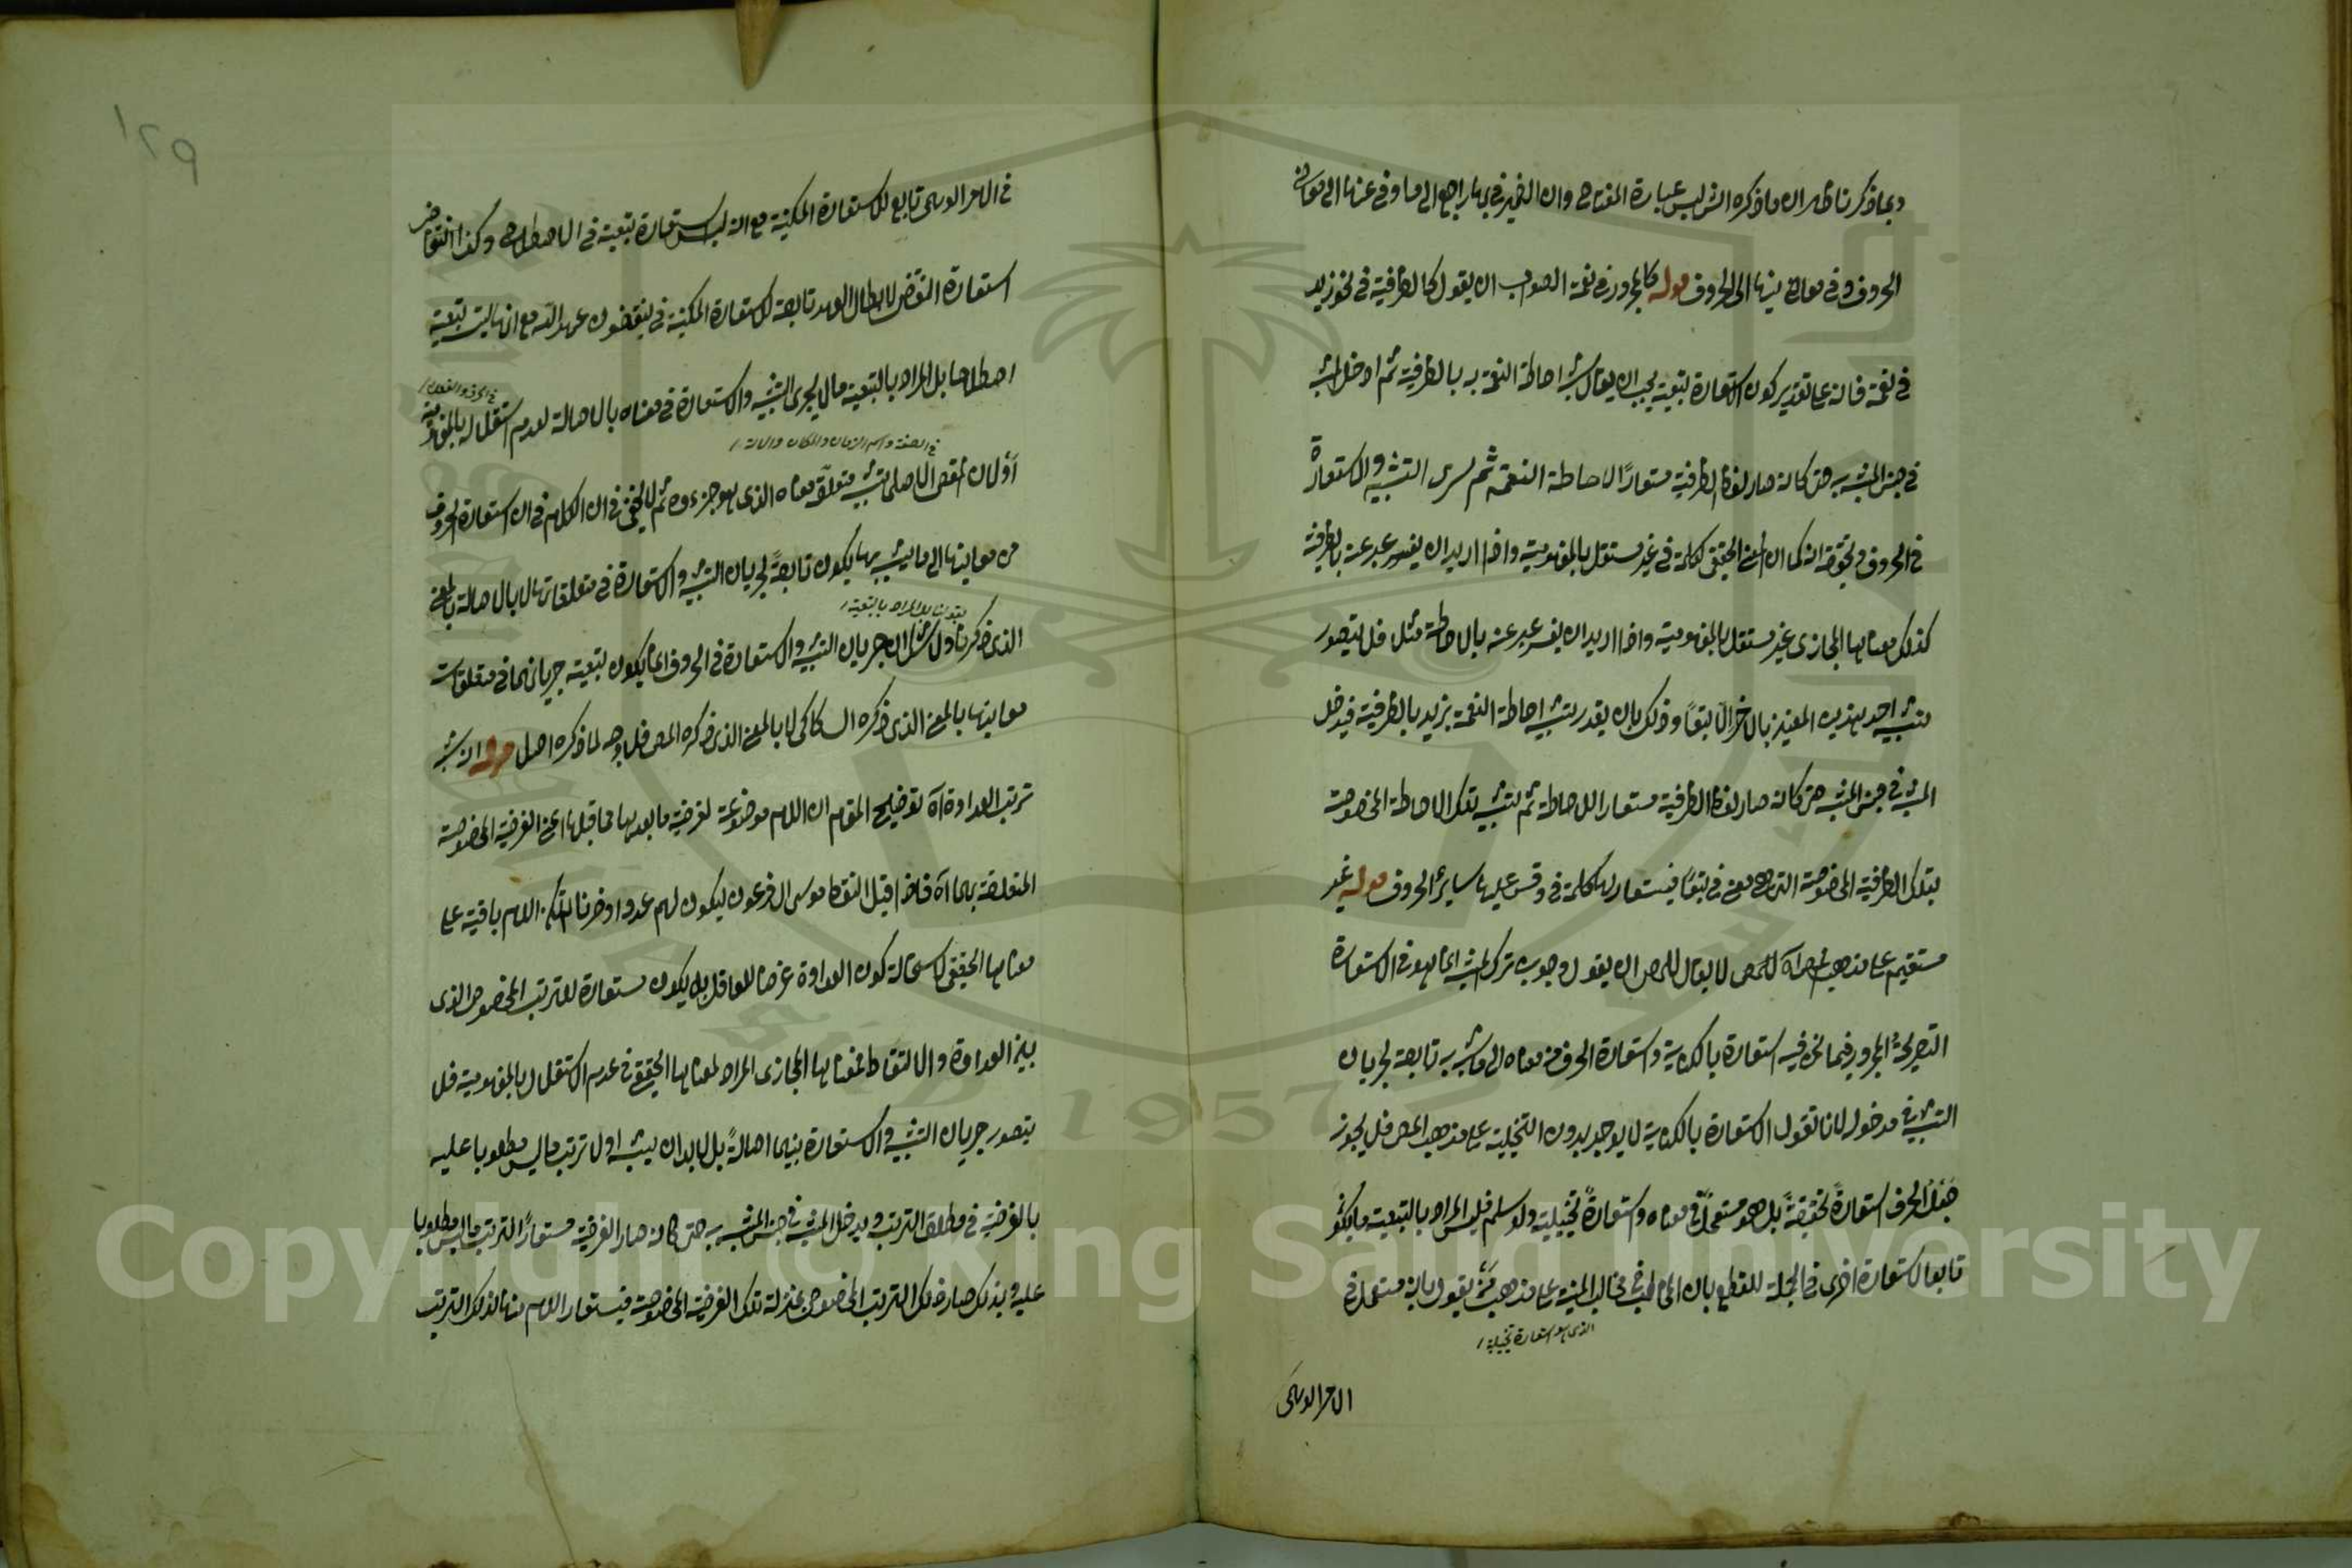 وبما ذكرنا ظهر ان ما ذكره الش ليس عبارة المفتاح وان الضمير في بها راجع الى ما وفي عنها الى معاني
الحروف وفي معاني بها الى الحروف قوله كالمجرور في نعمة الصواب ان يقول كالظرفية في نحو زيد
في نعمة فانه على تقدير كون الاستعارة تبعية يجب ان يقال شبه احاطة النعمة به بالظرفية ثم ادخل المشبه
في جنس المشبه به حتى كانه صار لفظ الظرفية مستعارًا لاحاطة النعمة ثم يسرى التشبيه والاستعارة
في الحروف وتحقيقه انه كما ان المعنى الحقيقي لكلمة في غير مستقل بالمفهومية واذا اريد ان يفسر عبر عنه بالظرفية
كذلك معناها المجازى غير مستقل بالمفهومية واذا اريد ان يفسر عبر عنه بالاحاطة مثلا فلا يتصور
تشبيه احد هذين المعنيين بالاخر الا تبعًا وذلك بان يقدر تشبيه احاطة النعمة بزيد بالظرفية فيدخل
المشبه في جنس المشبه به حتى كانه صار لفظ الظرفية مستعارا للاحاطة ثم تشبيه تلك الاحاطة المخصوصة
بتلك الظرفية المخصوصة التي هي معنى في تبعًا فيستعار لها كلمة في وقس عليها سائر الحروف قوله غير
مستقيم على مذهب المص آه لا يقال للمص ان يقول وجوب ترك المشبه انما هو في الاستعارة
التصريحية المجرور فيما نحن فيه استعارة بالكناية واستعارة الحرف من معناه الى ما شبه به تابعة لجريان
التشبيه في مدخوله لانا نقول الاستعارة بالكناية لا يوجد بدون التخييلية على مذهب المص فلا يجوز
جعل الحرف استعارةً تحقيقيةً بل هو مستعمل في معناه واستعارةً تخييلية ولو سلم فليس المراد بالتبعية ما يكون
تابعا لاستعارة اخرى في الجملة للقطع بان المخالب في مخالب المنية على مذهب من يقول بانه مستعمل في
الذى هو استعارة تخييلية
الامر الوهمى
١٢٩
في الامر الوهمى تابع للاستعارة المكنية مع انه ليس استعارة تبعية في الاصطلاح وكذا النقض
استعارة النقض لابطال العهد تابعة لاستعارة المكنية في ينقضون عهد الله مع انها ليست تبعية
اصطلاحا بل المراد بالتبعية ما لا يجرى التشبيه والاستعارة في معناه بالاصالة لعدم استقلاله بالمفهومية
في الحرف والفعل
في الصفة واسم الزمان والمكان والآلة
اولان المقص الاصلى تشبيه متعلق معناه الذى هو جزءه ثم لا يخفى ان الكلام في ان استعارة الحروف
من معانيها الى ما يشبه بها يكون تابعةً لجريان التشبيه والاستعارة في متعلقاتها لا بالاصالة بالمعنى
بقولنا بل المراد بالتبعية
الذى ذكرناه ولا شك ان جريان التشبيه والاستعارة في الحروف انما يكون بتبعية جريانهما في متعلقات
معانيها بالمعنى الذى ذكره السكاكى لا بالمعنى الذى ذكره المص فلا وجه لما ذكره اصلا قوله انه شبه
ترتب العداوة آه توضيح المقام ان اللام موضوعة لغرضية ما بعدها مما قبلها اعنى الغرضية المخصوصة
المتعلقة بهما آه فاذا قيل التقط موسى ال فرعون ليكون لهم عدوا وحزنا اللام باقية على
معناها الحقيقى لاستحالة كون العداوة غرضا للعاقل بل يكون مستعارة للترتب المخصوص الذى
بين العداوة والالتقاط فمعناها المجازى المراد لمعناها الحقيقى في عدم الاستقلال بالمفهومية فلا
يتصور جريان التشبيه والاستعارة بينهما اصالةً بل لا بد ان يشبه اولا ترتب ما ليس مطلوبا عليه
بالغرضية في مطلق الترتب ويدخل المشبه في جنس المشبه به حتى كانه صار الغرضية مستعارًا لترتب ما ليس مطلوبا
عليه وبذلك صار ذلك الترتب المخصوص بمنزلة تلك الغرضية المخصوصة فيستعار اللام منها لذلك الترتب
Copyright © King Saud University
1957